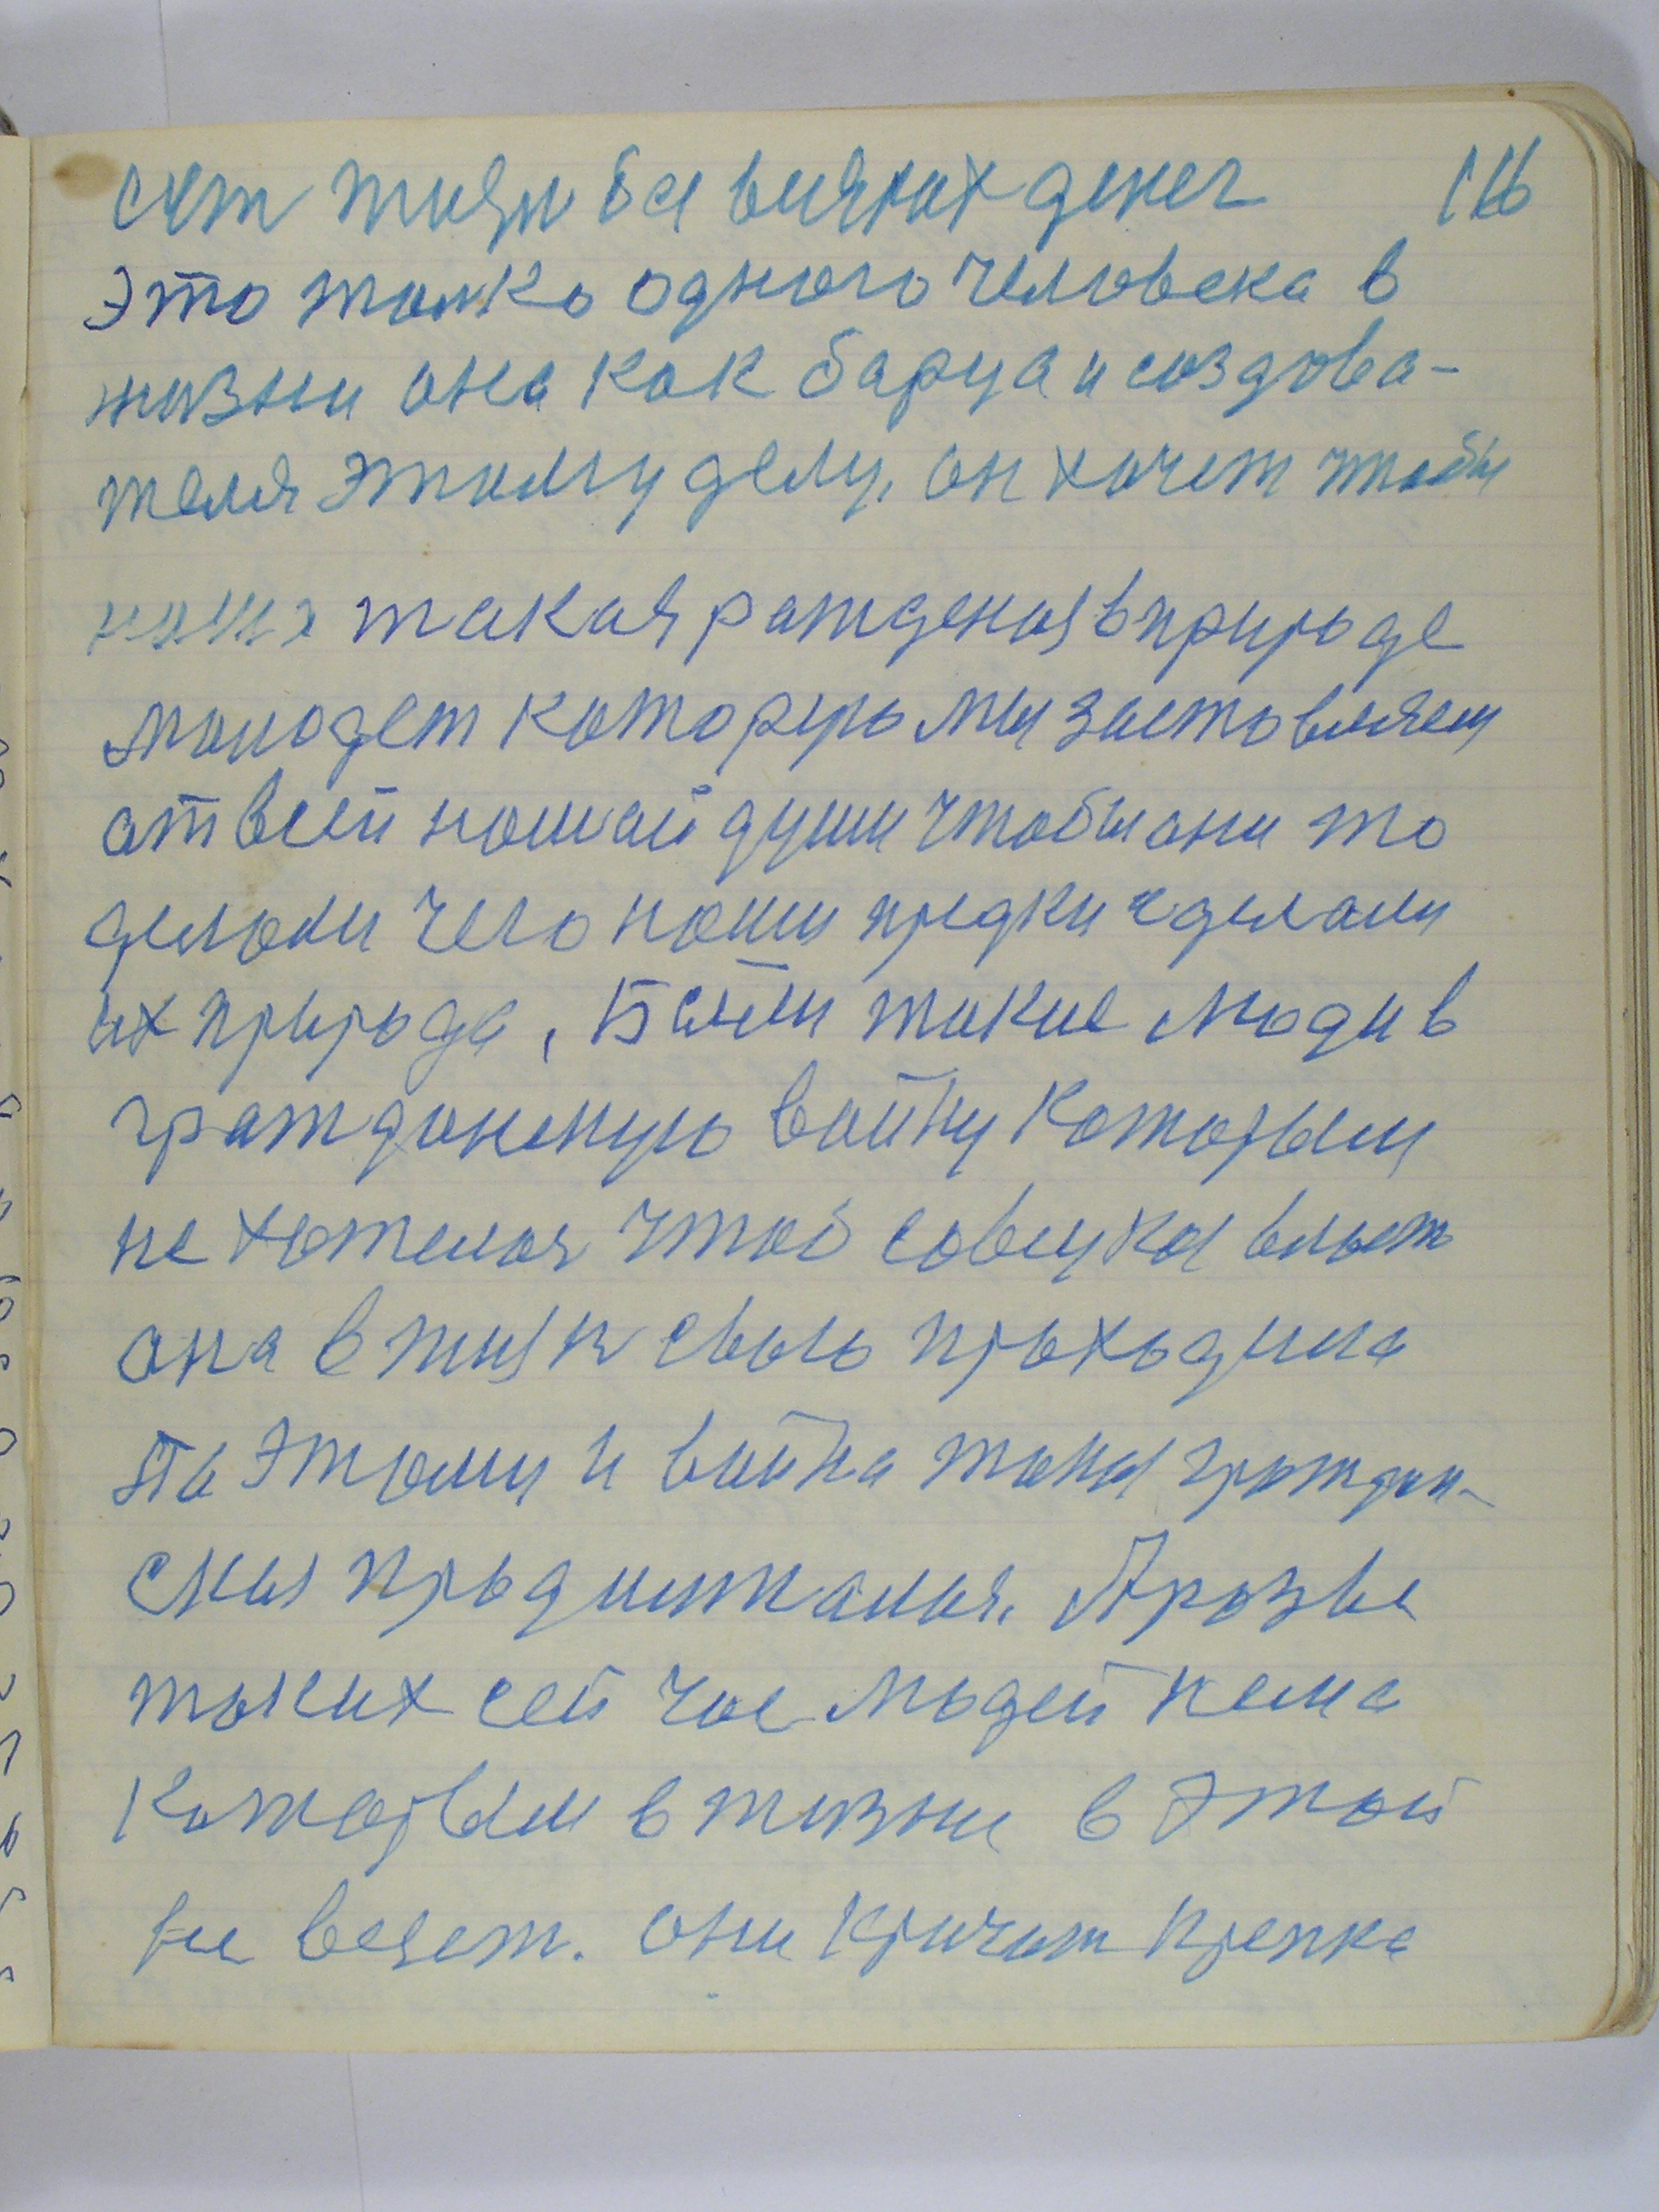 116
сят тизн без всяких денег
это толко одного человека в
жизни она как барца и создова-
теля этому делу, он хочет чтобы
наша такая ратдения в природе
молодет которую мы застовляем
от всей нашай души чтобы они то
делали чего наши предки сделали
их природе, Были такие люди в
гратдонскую войну которым
не хотелося чтоб совецкая власть
она в тизн свою проходила
Па этому и война тона гротдон-
ская продилжалася. А розве
таких сей час людей нема
которым в тизни в этой
не везет. они кричат крепка